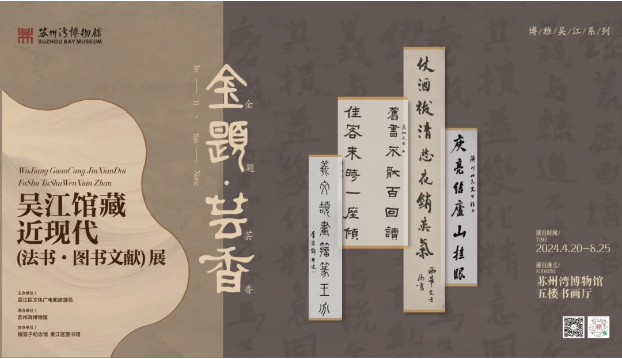 苏州湾博物馆
SUZHOU BAY MUSEUM
博/雅/吴/江/系/列
金题·芸香
金
题
芸
香
Jin
Ti
Yun
Xiang
WuJiang GuanCang JinXianDai
FaShu TuShuWenXian Zhan
吴江馆藏
近现代
(法书·图书文献)展
主办单位/
吴江区文体广电和旅游局
承办单位/
苏州湾博物馆
协办单位/
柳亚子纪念馆 吴江区图书馆
仗酒祓清愁花销英气
舊書不厭百回讀
佳客來時一座傾
庾亮
廬山挂眼
展出时间/
TIME
2024.4.20—8.25
展出地点/
ADDRESS
苏州湾博物馆
五楼书画厅